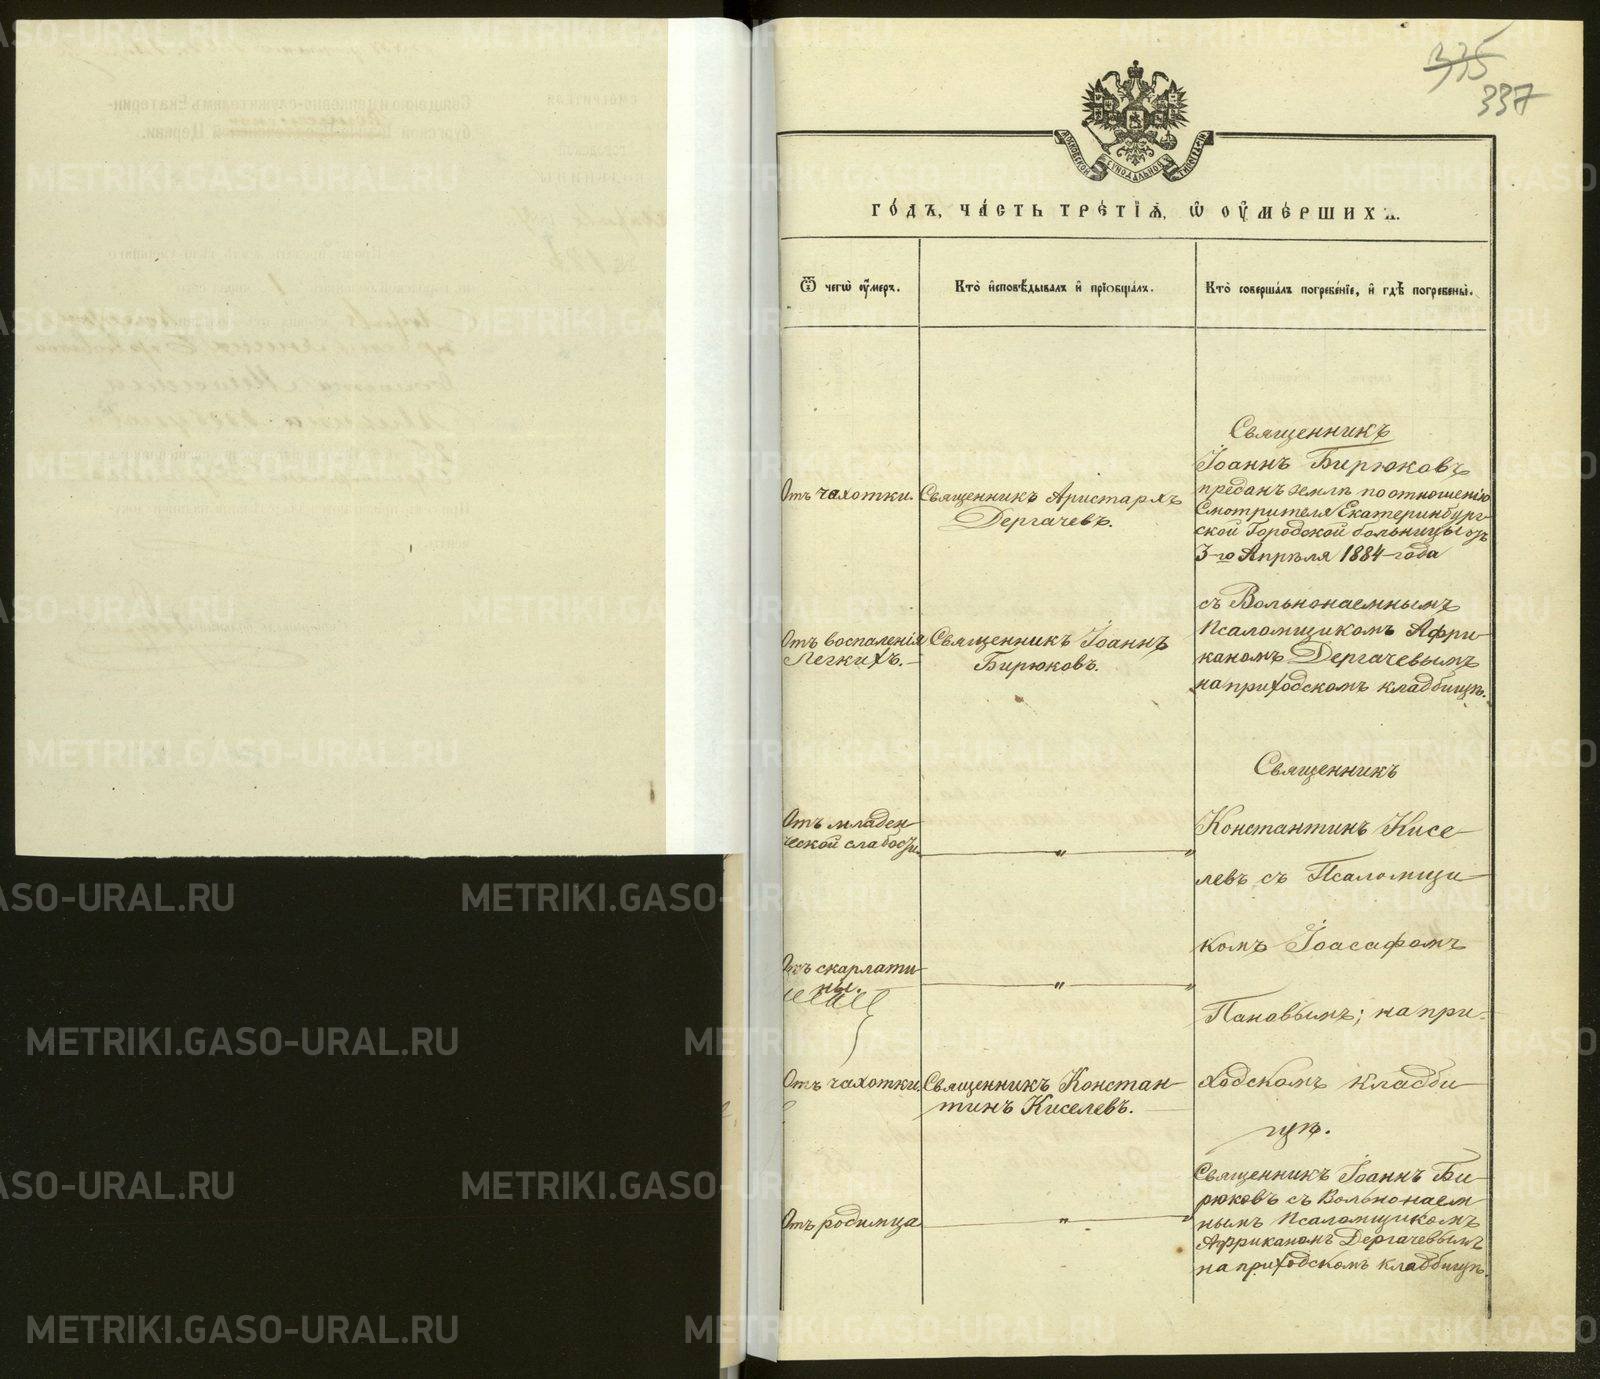 335
337
МОСКОВСКОЙ СѴНОДАЛЬНОЙ ТИПОГРАФІИ
ГО́ДЪ, ЧА́СТЬ ТРЕ́ТІѦ, Ѡ҆ ОУ҆МЕ́РШИХЪ.
Ѿ чегѡ̀ оу҆́меръ.
Кто̀ и҆сповѣ́дывалъ и҆ прїѡбща́лъ.
Кто̀ соверша́лъ погребе́нїе, и҆ гдѣ̀ погребены̀.
Отъ чахотки.
Священникъ Аристархъ
Дергачевъ.
Священникъ
Іоаннъ Бирюковъ
предан земли по отношенію
Смотрителя Екатеринбург-
ской Городской больницы отъ
3-го Апрѣля 1884 года
Отъ воспаленія
Легкихъ.
Священникъ Іоаннъ
Бирюковъ.
съ Вольнонаемнымъ
Псаломщикомъ Афри-
каномъ Дергачевымъ
на приходскомъ кладбищѣ.
Отъ младен-
ческой слабости.
„
Священникъ
Константинъ Кисе-
левъ съ Псаломщи-
комъ Іоасафомъ
Пановымъ; на при-
ходскомъ кладби-
щѣ.
Отъ скарлати-
ны.
„
Отъ чахотки.
Священникъ Констан-
тинъ Киселевъ.
Отъ родимца
„
Священникъ Іоаннъ Би-
рюковъ съ Вольнонаем-
нымъ Псаломщикомъ
Африканомъ Дергачевымъ
на приходскомъ кладбищѣ.
METRIKI.GASO-URAL.RU